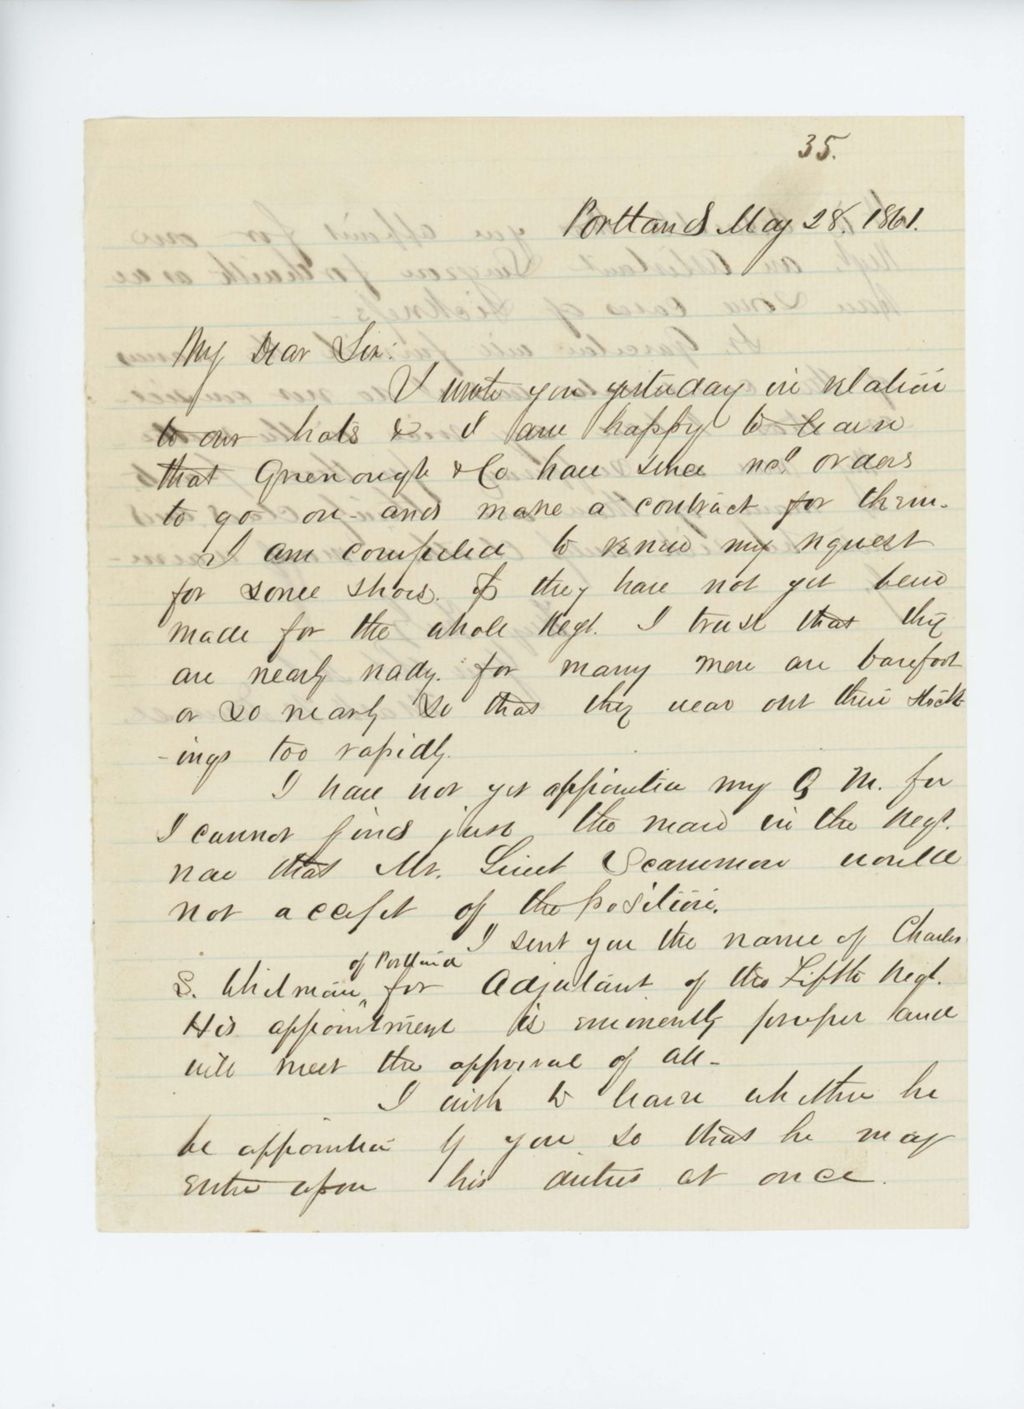 35.
Portland May 28. 1861.
My Dear Sir:
I wrote you yesterday in relation
to our hats & I am happy to learn
that Greenough & Co have since recd orders
to go on and make a contract for them.
I am compelled to renew my request
for some shoes. If they have not yet been
made for the whole Regt. I trust that they
are nearly ready. for many men are barefoot
or so nearly so that they wear out their stock-
-ings too rapidly.
I have not yet appointed my Q M. for
I cannot find just the man in the Regt.
now that Mr. Lieut Scammon would
not accept of the position.
I sent you the name of Charles
of Portland
S. Whitman for Adjutant of the Fifth Regt.
His appointment is eminently proper and
will meet the approval of all -
I wish to learn whether he
be appointed by you so that he may
enter upon his duties at once.